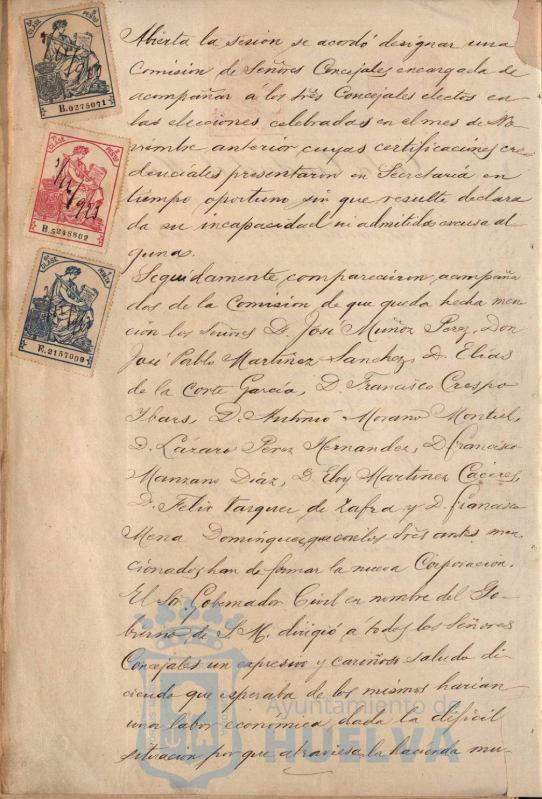 Abierta la sesión se acordó designar una
Comisión de Señores Concejales encargada de
acompañar á los Sres Concejales electos en
las elecciones celebradas en el mes de No-
viembre anterior cuyas certificaciones cre-
denciales presentaron en Secretaría en
tiempo oportuno sin que resulte declara
da su incapacidad ni admitida excusa al
guna.
Seguidamente, comparecieron, acompaña
dos de la Comisión de que queda hecha men-
ción los Señores D. José Muñoz Perez, Don
José Pablo Martinez Sanchez, D. Elías
de la Corte García, D. Francisco Crespo
Ibars, D. Antonio Morano Montiel,
D. Lázaro Perez Hernandez, D. Francisco
Manzano Díaz, D. Eloy Martinez Cáceres,
D. Felix Vazquez de Zafra y D. Francisco
Mena Dominguez, que con los Sres antes men-
cionados, han de formar la nueva Corporación.
El Sr. Gobernador Civil en nombre del Go-
bierno de S. M. dirigió a todos los Señores
Concejales un expresivo y cariñoso saludo di-
ciendo que esperaba de los mismos harian
una labor económica dada la dificil
situación por que atraviesa la hacienda mu-
B.0275071
B.5248802
E.2157009
CLASE
CLASE
CLASE
Ayuntamiento de
HUELVA